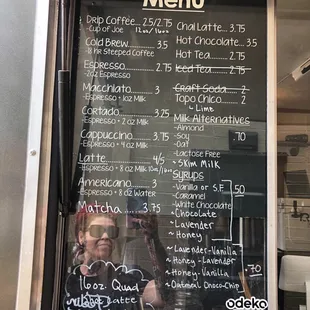 Menu
Drip Coffee... 2.5/2.75
-Cup of Joe 12oz/16oz
Cold Brew... 3.5
-8 hr Steeped Coffee
Espresso... 2.75
-2oz Espresso
Macchiato 3
-Espresso + 1oz Milk
Cortado 3.25
-Espresso + 2oz Milk
Cappuccino 3.75
-Espresso + 4oz Milk
Latte 4/5
-Espresso + 8oz Milk
Americano 3
-Espresso + 8oz Water
Matcha 3.75
16oz. Quad
Latte
Chai Latte... 3.75
Hot Chocolate... 3.5
Hot Tea... 2.75
Iced Tea... 2.75
Craft Soda... 2
Topo Chico... 2
Lime
Milk Alternatives
-Almond
-Soy .70
-Oat
-Lactose Free
Skim Milk
Syrups
-Vanilla or S.F. .50
-Caramel
-White Chocolate
-Chocolate
-Lavender
-Honey
-Lavender-Vanilla
-Honey-Lavender
-Honey-Vanilla .70
-Oatmeal Choco-Chip
odeko